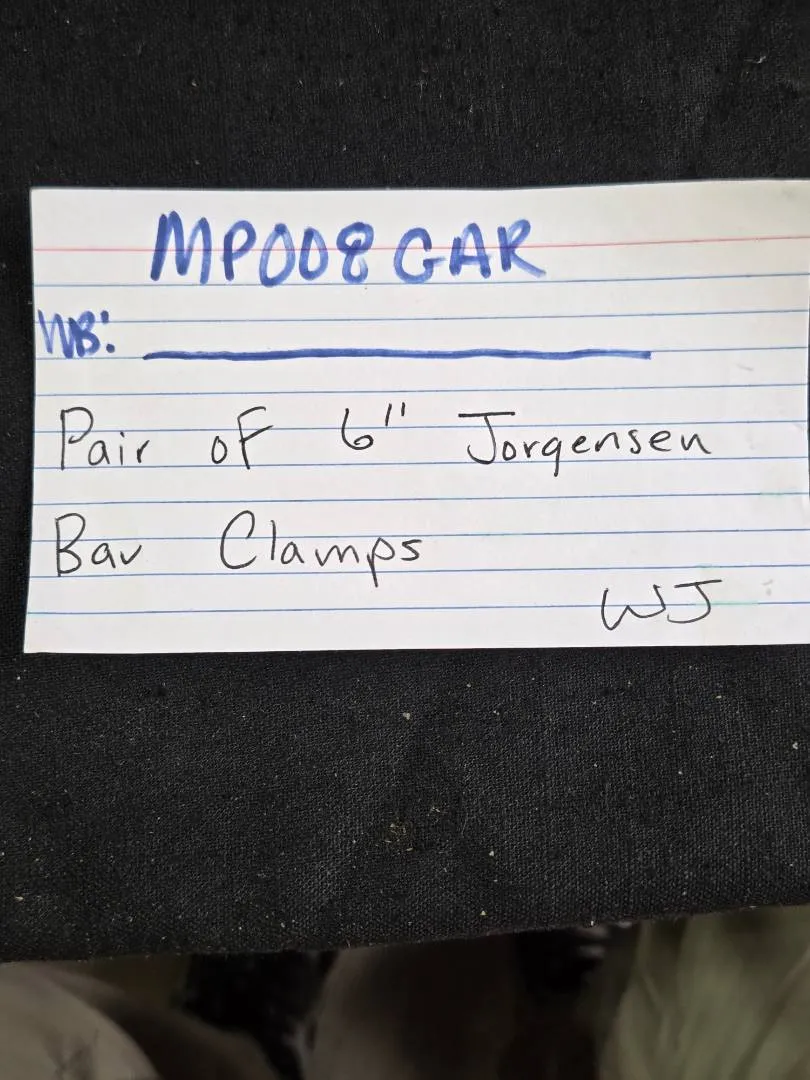 MP008GAR
WB:
Pair of 6" Jorgensen
Bar Clamps
WJ